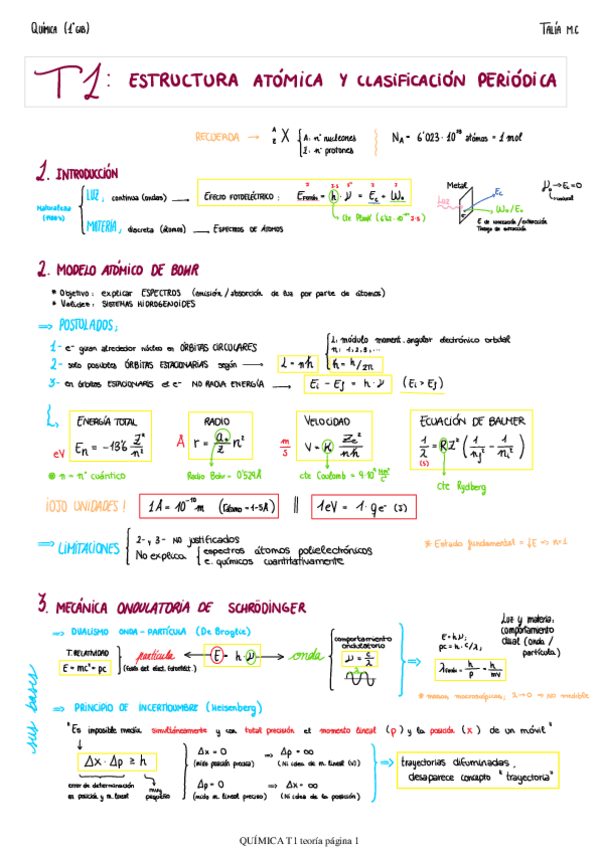 QUÍMICA (1º GIB)
TALÍA M.C
T1: ESTRUCTURA ATÓMICA Y CLASIFICACIÓN PERIÓDICA
RECUERDA → ᴬ_Z X { A: nº nucleones
Z: nº protones
N_A = 6'023 · 10²³ átomos = 1 mol
1. INTRODUCCIÓN
Naturaleza
LUZ, continua (ondas) → EFECTO FOTOELÉCTRICO: E_fotón = h · ν = E_c + W_o
Cte Planck
MATERIA, discreta (átomos) → ESPECTROS DE ÁTOMOS
Metal
Luz
E_c
W_o / E_o
E de ionización / extracción
Trabajo de extracción
ν_o → E_c = 0
2. MODELO ATÓMICO DE BOHR
* Objetivo: explicar ESPECTROS (emisión / absorción de luz por parte de átomos)
* Validez: SISTEMAS HIDROGENOIDES
⇒ POSTULADOS:
1- e⁻ giran alrededor núcleo en ÓRBITAS CIRCULARES
2- solo posibles ÓRBITAS ESTACIONARIAS según → L = nħ
L: módulo moment. angular electrónico orbital
n: 1, 2, 3, ...
ħ = h/2π
3- en órbitas ESTACIONARIS el e⁻ NO RADIA ENERGÍA → Ei - Ef = h · ν (Ei > Ef)
ENERGÍA TOTAL
eV E_n = -13'6 Z²/n²
RADIO
Å r = a_o/Z n²
VELOCIDAD
m/s V = K Ze²/nħ
ECUACIÓN DE BALMER
1/λ = RZ² (1/n_j² - 1/n_i²)
n = nº cuántico
Radio Bohr = 0'529Å
cte Coulomb = 9·10⁹ Nm²/C²
cte Rydberg
¡OJO UNIDADES!
1Å = 10⁻¹⁰ m (r átomo = 1-5Å) || 1eV = 1 · q e⁻ (J)
⇒ LIMITACIONES { 2- y 3- NO justificados
No explica { espectros átomos polielectrónicos
e. químicos cuantitativamente
* Estado fundamental = ↓E ⇒ n=1
3. MECÁNICA ONDULATORIA DE SCHRÖDINGER
sus bases
⇒ DUALISMO ONDA - PARTÍCULA (De Broglie)
T. RELATIVIDAD
E = mc² = pc
partícula ← E = h ν → onda
comportamiento
ondulatorio
ν = c/λ
E = hν;
pc = h · c/λ;
λ = h/p = h/mv
Luz y materia:
comportamiento
dual (onda /
partícula)
* masas macroscópicas; λ→0 ⇒ no medible
⇒ PRINCIPIO DE INCERTIDUMBRE (Heisenberg)
"Es imposible medir simultáneamente y con total precisión el momento lineal (p) y la posición (x) de un móvil"
Δx · Δp ≥ h
error de determinación
en posición y m. lineal
muy
pequeño
Δx = 0 ⇒ Δp = ∞
(mido posición precisa) (Ni idea de m. lineal (v))
Δp = 0 ⇒ Δx = ∞
(mido m. lineal preciso) (Ni idea de la posición)
⇒ trayectorias difuminadas,
desaparece concepto "trayectoria"
QUÍMICA T1 teoría página 1